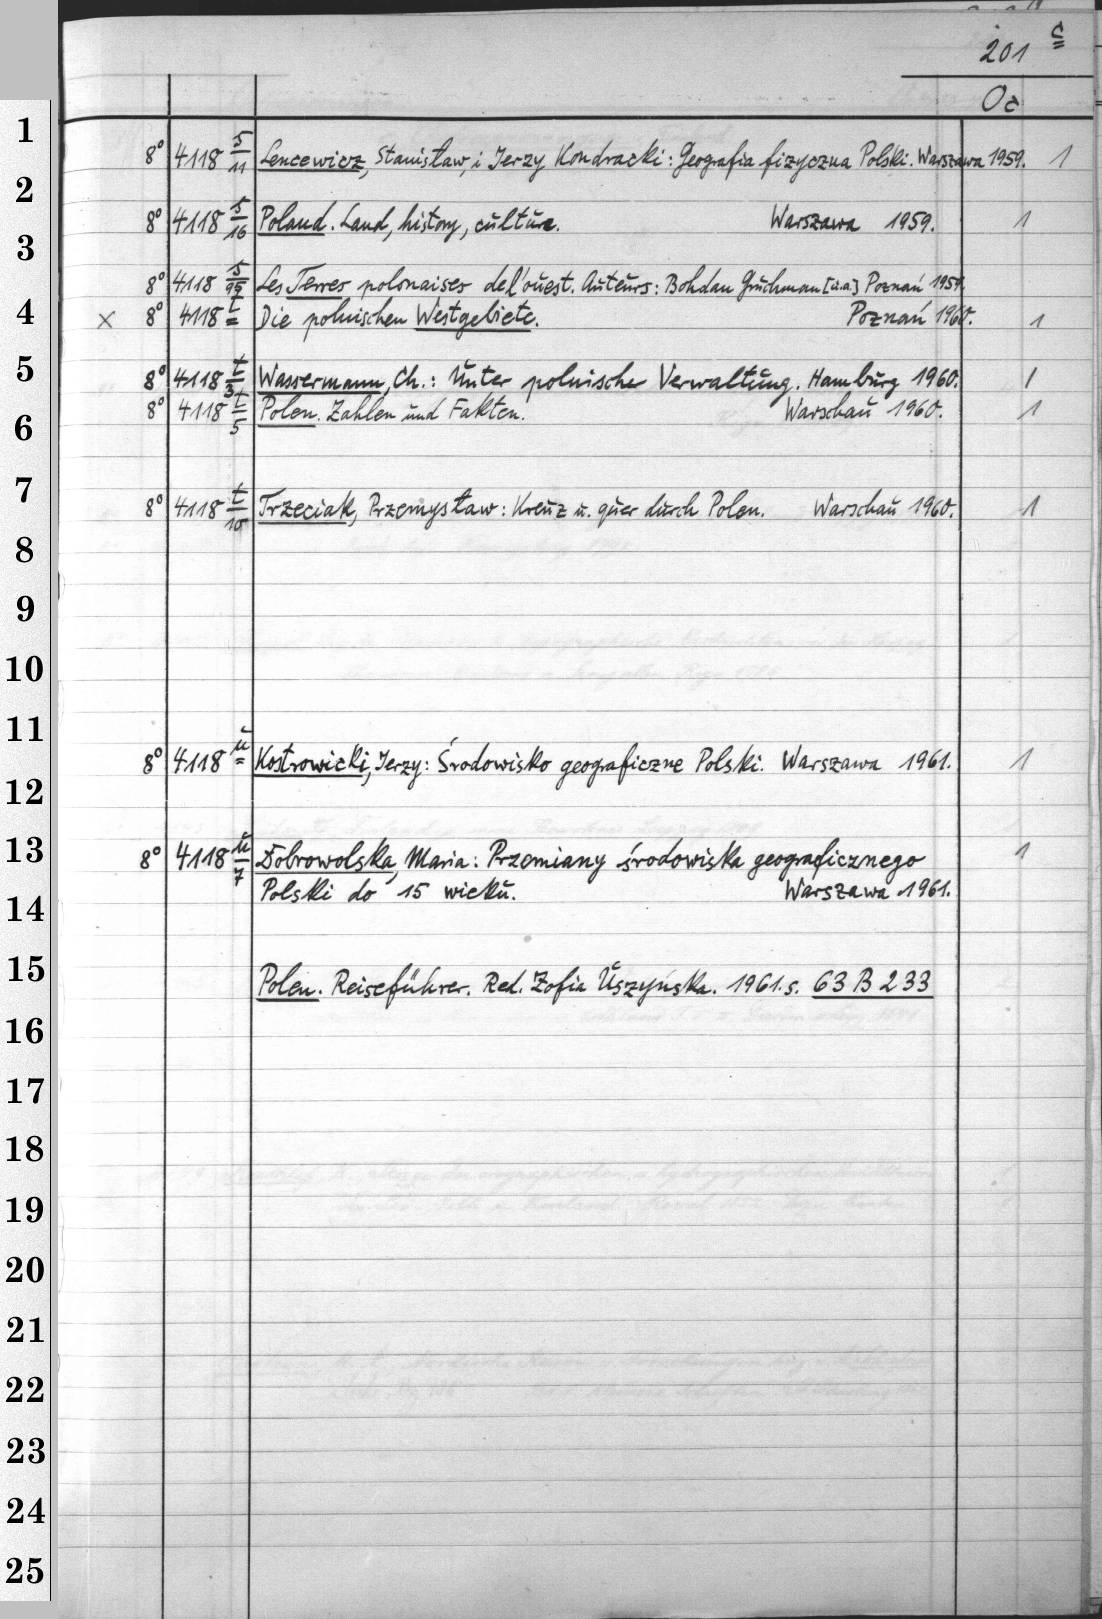 201 c
Oc
1
8° 4118 s/11 Lencewicz, Stanisław, i Jerzy Kondracki: Geografia fizyczna Polski. Warszawa 1959. 1
2
8° 4118 s/16 Poland. Land, history, culture. Warszawa 1959. 1
3
8° 4118 s/95 Les Terres polonaises de l'ouest. Auteurs: Bohdan Gruchman [u.a.] Poznań 1959.
4
x 8° 4118 t Die polnischen Westgebiete. Poznań 1960. 1
5
8° 4118 t/3 Wassermann, Ch.: Unter polnischer Verwaltung. Hamburg 1960. 1
8° 4118 t/5 Polen. Zahlen und Fakten. Warschau 1960. 1
6
7
8° 4118 t/10 Trzeciak, Przemysław: Kreuz u. quer durch Polen. Warschau 1960. 1
8
9
10
11
8° 4118 u Kostrowicki, Jerzy: Środowisko geograficzne Polski. Warszawa 1961. 1
12
13
8° 4118 u/7 Dobrowolska, Maria: Przemiany środowiska geograficznego 1
Polski do 15 wieku. Warszawa 1961.
14
15
Polen. Reiseführer. Red. Zofia Uszyńska. 1961. s. 63 B 233
16
17
18
19
20
21
22
23
24
25